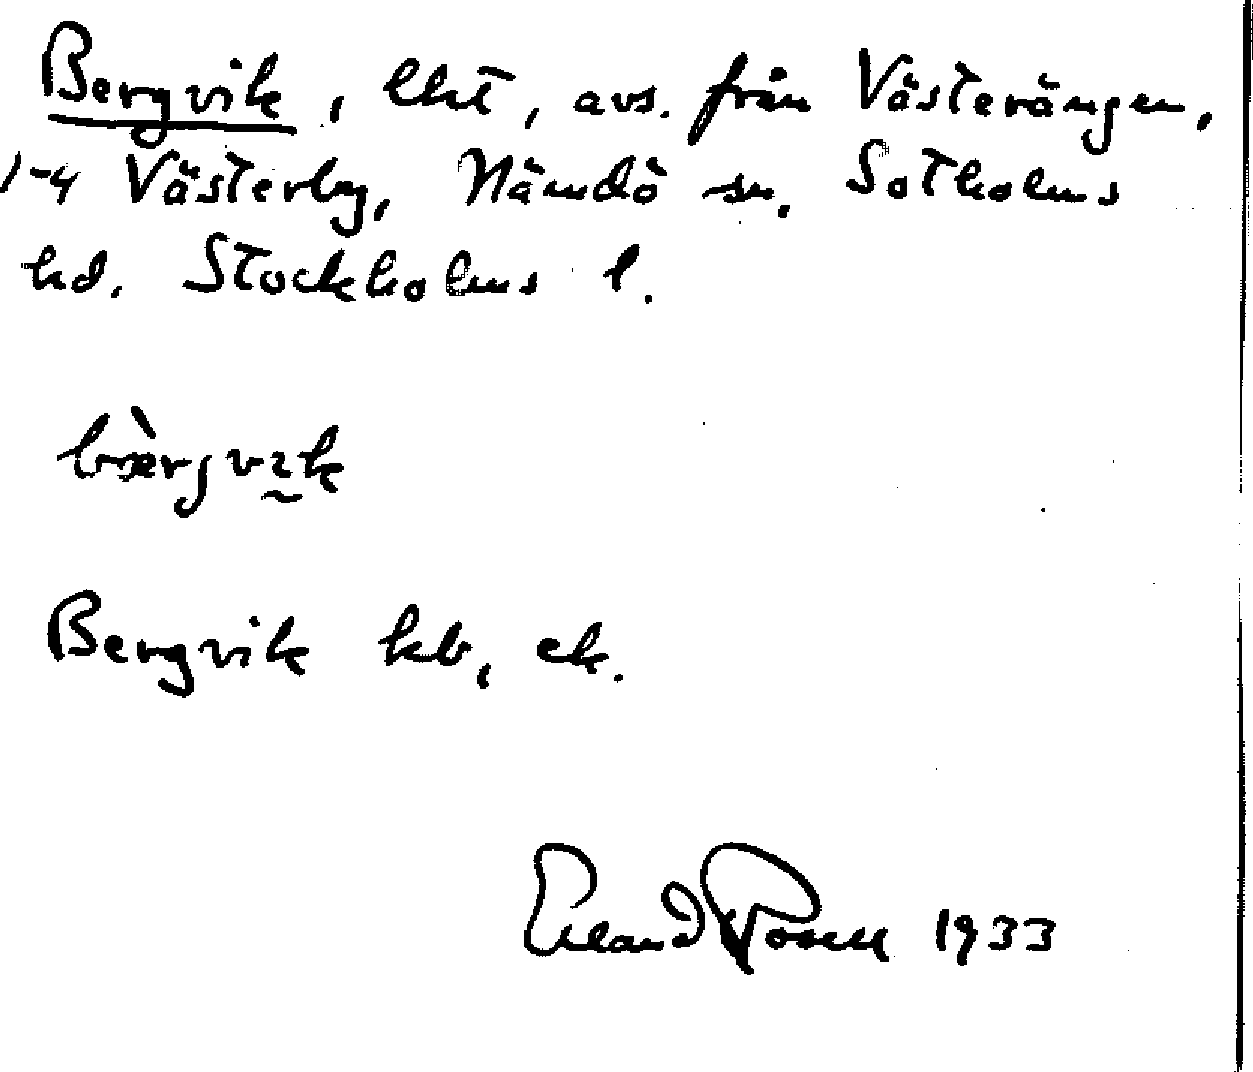 Bergvik, lht, avs. från Västerängen,
1-4 Västerby, Nämdö sn. Sotholms
hd. Stockholms l.
bærgvik
Bergvik kb, ek.
Erland Rosell 1933